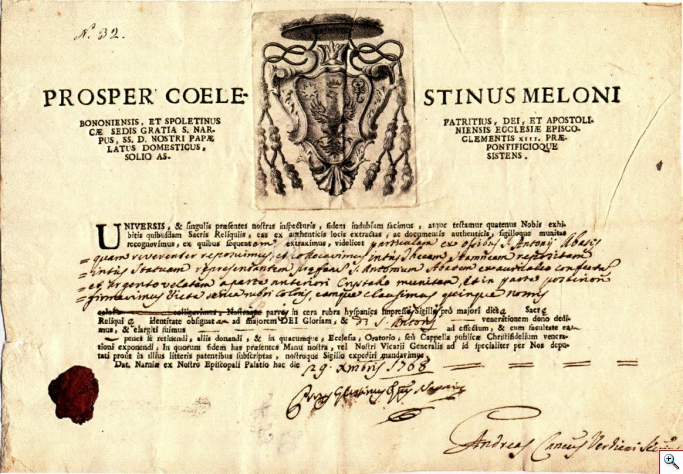 N.º 32.
PROSPER COELE- STINUS MELONI
BONONIENSIS, ET SPOLETINUS PATRITIUS, DEI, ET APOSTOLI-
CÆ SEDIS GRATIA S. NAR- NIENSIS ECCLESIÆ EPISCO-
PUS, SS. D. NOSTRI PAPÆ CLEMENTIS XIII. PRÆ-
LATUS DOMESTICUS, PONTIFICIOQUE
SOLIO AS- SISTENS.
UNIVERSIS, & singulis præsentes nostras inspecturis, fidem indubiam facimus, atque testamur quatenus Nobis exhi-
bitis quibusdam Sacris Reliquiis, eas ex authenticis locis extractas, ac documentis authenticis, sigillisque munitas
recognovimus, ex quibus sequentem extraximus, videlicet particulam ex ossibus S. Antonij Abatis
quam reverenter reposuimus, et collocavimus intus thecam stamneam repositam
intus Statuam representantem S. Antonium Abatem ex auricalco confectum
et Argento velatam a parte anteriori Crystallo munitam, et in parte posteriori
firmavimus
colligavimus, Nostroque parvo in cera rubra hyspanica impresso Sigillo pro majori dictæ Sacræ
Reliquiæ identitate obsignatam ad majorem DEI Gloriam, & S. Antonij venerationem dono dedi-
mus, & elargiti fuimus ad effectum, & cum facultate
penes se retinendi, aliis donandi, & in quacumque, Ecclesia, Oratorio, seu Cappella publicæ Christifidelium venera-
tioni exponendi. In quorum fidem has præsentes Manu nostra, vel Nostri Vicarii Generalis ad id specialiter per Nos depu-
tati prout in illius litteris patentibus subscriptas, nostroque Sigillo expediri mandavimus.
Dat. Narniæ ex Nostro Episcopali Palatio hac die 29. Xmbris 1768
Andreas